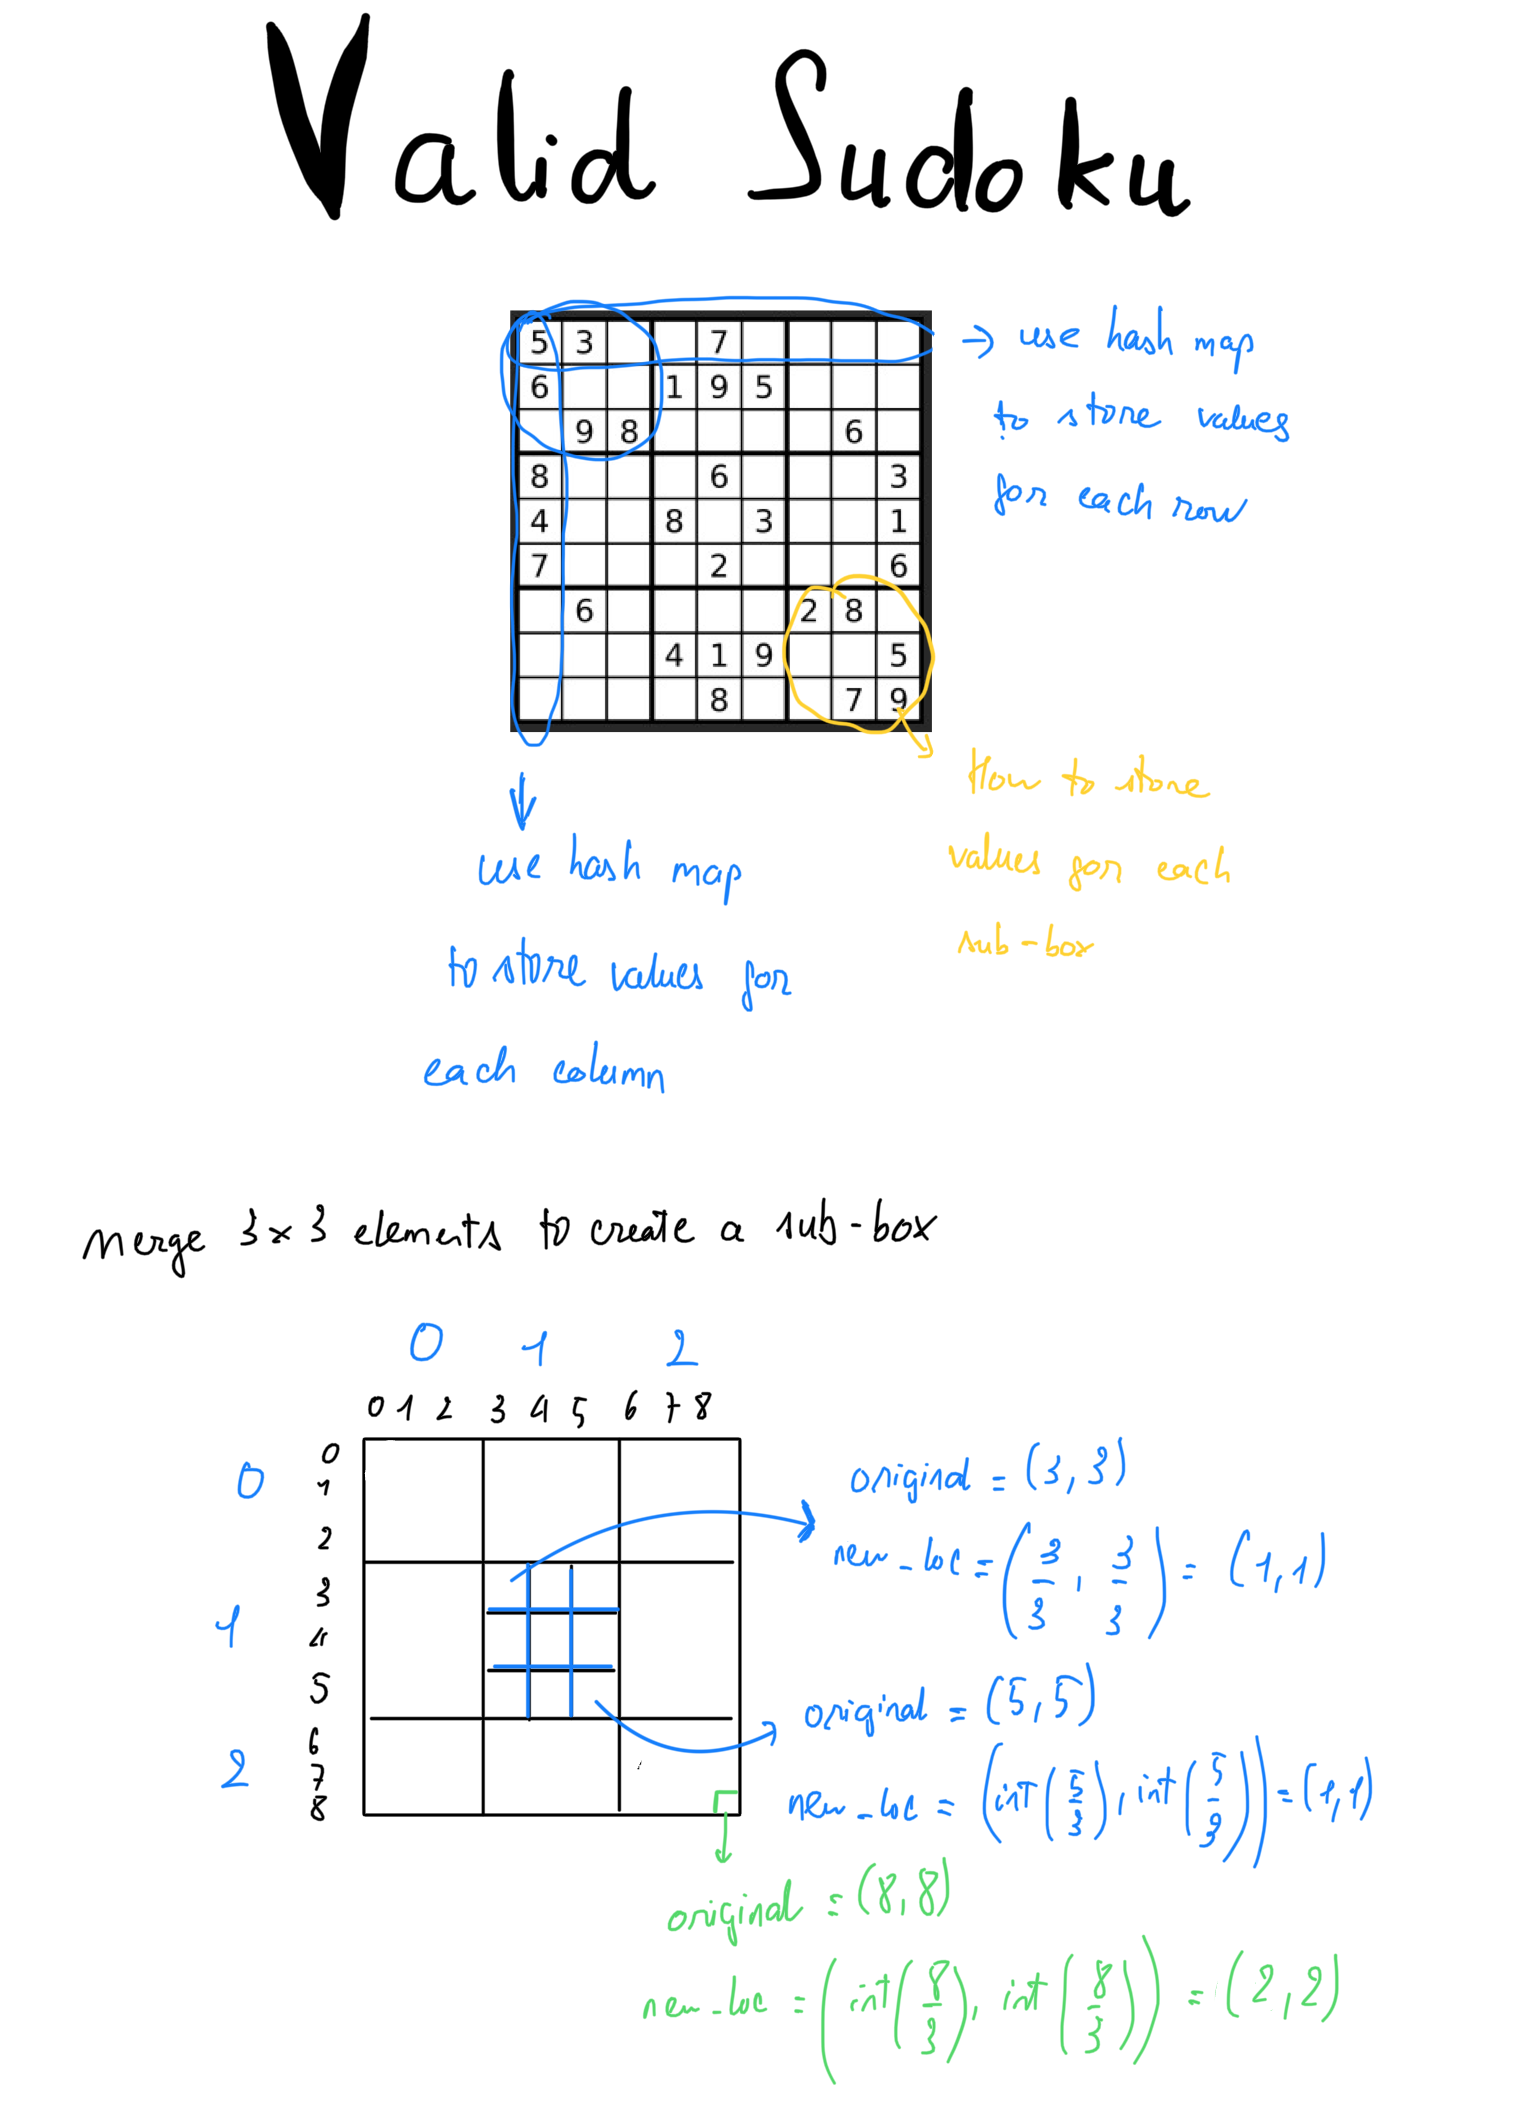 Valid Sudoku
5 3 7
6 1 9 5
9 8 6
8 6 3
4 8 3 1
7 2 6
6 2 8
4 1 9 5
8 7 9
→ use hash map
to store values
for each row
How to store
values for each
sub-box
use hash map
to store values for
each column
Merge 3x3 elements to create a sub-box
0 1 2
0 1 2 3 4 5 6 7 8
0
0
1
2
3
1
4
5
6
2
7
8
original = (3, 3)
new_loc = (3/3, 3/3) = (1, 1)
original = (5, 5)
new_loc = (int(5/3), int(5/3)) = (1, 1)
original = (8, 8)
new_loc = (int(8/3), int(8/3)) = (2, 2)